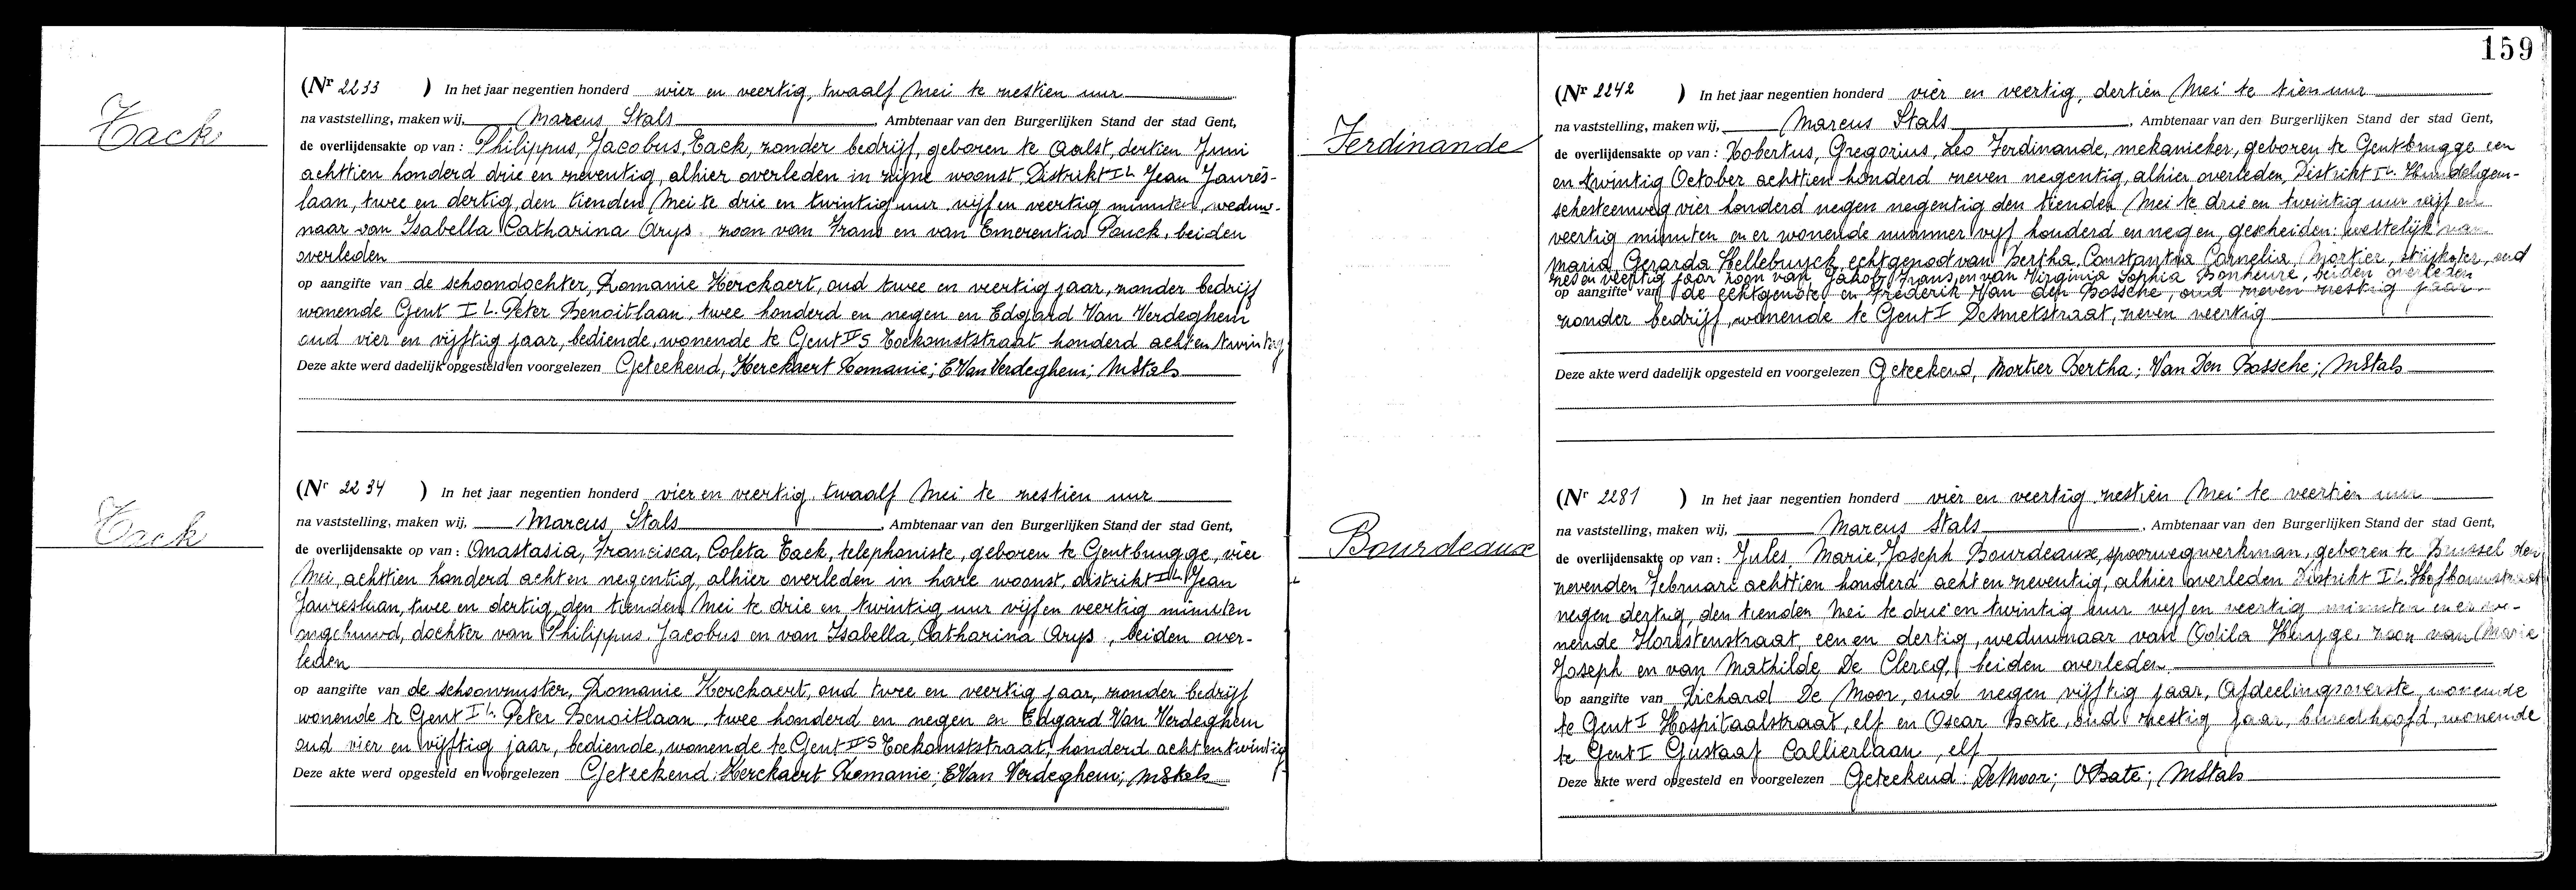 Tack
(Nr 2233 ) In het jaar negentien honderd vier en veertig, twaalf Mei te zestien uur
na vaststelling, maken wij, Marcus Stals, Ambtenaar van den Burgerlijken Stand der stad Gent,
de overlijdensakte op van : Philippus, Jacobus, Tack, zonder bedrijf, geboren te Aalst, dertien Juni
achttien honderd drie en zeventig, alhier overleden in zijne woonst, Distrikt I L. Jean Jaurès-
laan, twee en dertig, den tienden Mei te drie en twintig uur vijf en veertig minuten, weduw-
naar van Isabella Catharina Arys zoon van Frans en van Emerentia Pauck, beiden
overleden
op aangifte van de schoondochter, Romanie Kerckaert, oud twee en veertig jaar, zonder bedrijf
wonende Gent I L. Peter Benoitlaan, twee honderd en negen en Edgard Van Verdeghem
oud vier en vijftig jaar, bediende, wonende te Gent II S Toekomststraat honderd acht en twintig
Deze akte werd dadelijk opgesteld en voorgelezen Geteekend, Kerckaert Romanie; E Van Verdeghem; MStals
Tack
(Nr 2234 ) In het jaar negentien honderd vier en veertig, twaalf Mei te zestien uur
na vaststelling, maken wij, Marcus Stals, Ambtenaar van den Burgerlijken Stand der stad Gent,
de overlijdensakte op van : Anastasia, Francisca, Coleta Tack, telephoniste, geboren te Gentbrugge, vier
Mei, achttien honderd acht en negentig, alhier overleden in hare woonst, distrikt I L Jean
Jaureslaan, twee en dertig, den tienden Mei te drie en twintig uur vijf en veertig minuten
ongehuwd, dochter van Philippus Jacobus en van Isabella, Catharina Arys, beiden over-
leden
op aangifte van de schoonzuster, Romanie Kerckaert, oud twee en veertig jaar, zonder bedrijf
wonende te Gent I L. Peter Benoitlaan, twee honderd en negen en Edgard Van Verdeghem
oud vier en vijftig jaar, bediende, wonende te Gent II S Toekomststraat, honderd acht en twintig
Deze akte werd opgesteld en voorgelezen Geteekend: Kerckaert Romanie; E Van Verdeghem; MStals
159
Ferdinande
(Nr 2242 ) In het jaar negentien honderd vier en veertig, dertien Mei te tien uur
na vaststelling, maken wij, Marcus Stals, Ambtenaar van den Burgerlijken Stand der stad Gent,
de overlijdensakte op van : Robertus, Gregorius, Leo Ferdinande, mekanieker, geboren te Gentbrugge een
en twintig October achttien honderd zeven negentig, alhier overleden, Distrikt I L. Hundelgem-
schesteenweg vier honderd negen negentig den tienden Mei te drie en twintig uur vijf en
veertig minuten en er wonende nummer vijf honderd en negen, gescheiden: wettelijk van
Maria, Gerarda Hellebuyck, echtgenoot van Bertha, Constantia Cornelia Mortier, strijkster, oud
zes en veertig jaar zoon van Jakob, Frans, en van Virginia Sophia Bonheure, beiden overleden
op aangifte van de echtgenote en Frederik Van den Bossche, oud zeven zestig jaar
zonder bedrijf, wonende te Gent I Desmetstraat, zeven veertig
Deze akte werd dadelijk opgesteld en voorgelezen Geteekend, Mortier Bertha; Van Den Bossche; MStals
Bourdeaux
(Nr 2281 ) In het jaar negentien honderd vier en veertig zestien Mei te veertien uur
na vaststelling, maken wij, Marcus Stals, Ambtenaar van den Burgerlijken Stand der stad Gent,
de overlijdensakte op van : Jules Marie, Joseph Bourdeaux, spoorwegwerkman, geboren te Brussel den
zevenden Februari achttien honderd acht en zeventig, alhier overleden Distrikt I L. Hofbouwstraat
negen dertig, den tienden Mei te drie en twintig uur vijf en veertig minuten en er wo-
nende straat, een en dertig, weduwnaar van Odila Huyge, zoon van Marie
Joseph en van Mathilde De Clercq, beiden overleden
op aangifte van Richard De Moor, oud negen vijftig jaar, Afdeelingsoverste, wonende
te Gent I Hospitaalstraat, elf en Oscar Bate, oud zestig jaar, bureelhoofd, wonende
te Gent I Gustaaf Callierlaan, elf
Deze akte werd opgesteld en voorgelezen Geteekend: De Moor; O Bate; MStals